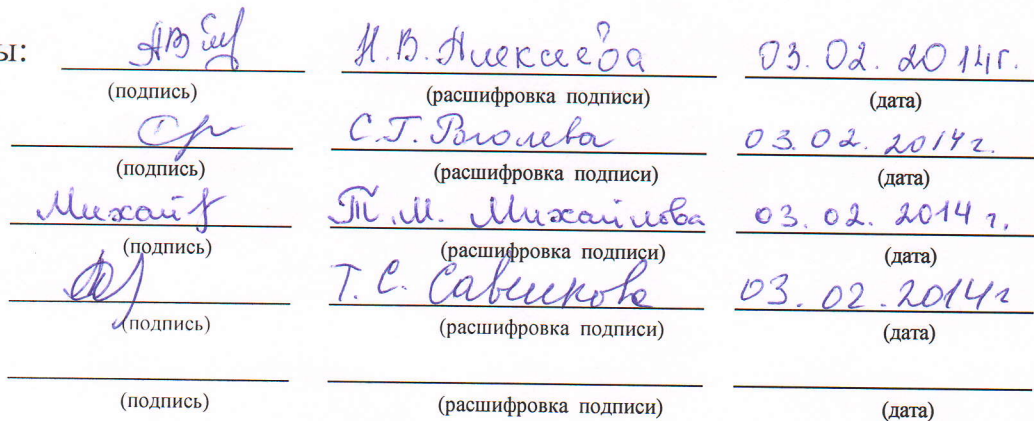 ы: Н.В. Алексеева 03.02.2014г.
(подпись) (расшифровка подписи) (дата)
С.Г. 03.02.2014г.
(подпись) (расшифровка подписи) (дата)
Т.М. Михайлова 03.02.2014г.
(подпись) (расшифровка подписи) (дата)
Т.С. Савенкова 03.02.2014г
(подпись) (расшифровка подписи) (дата)
(подпись) (расшифровка подписи) (дата)